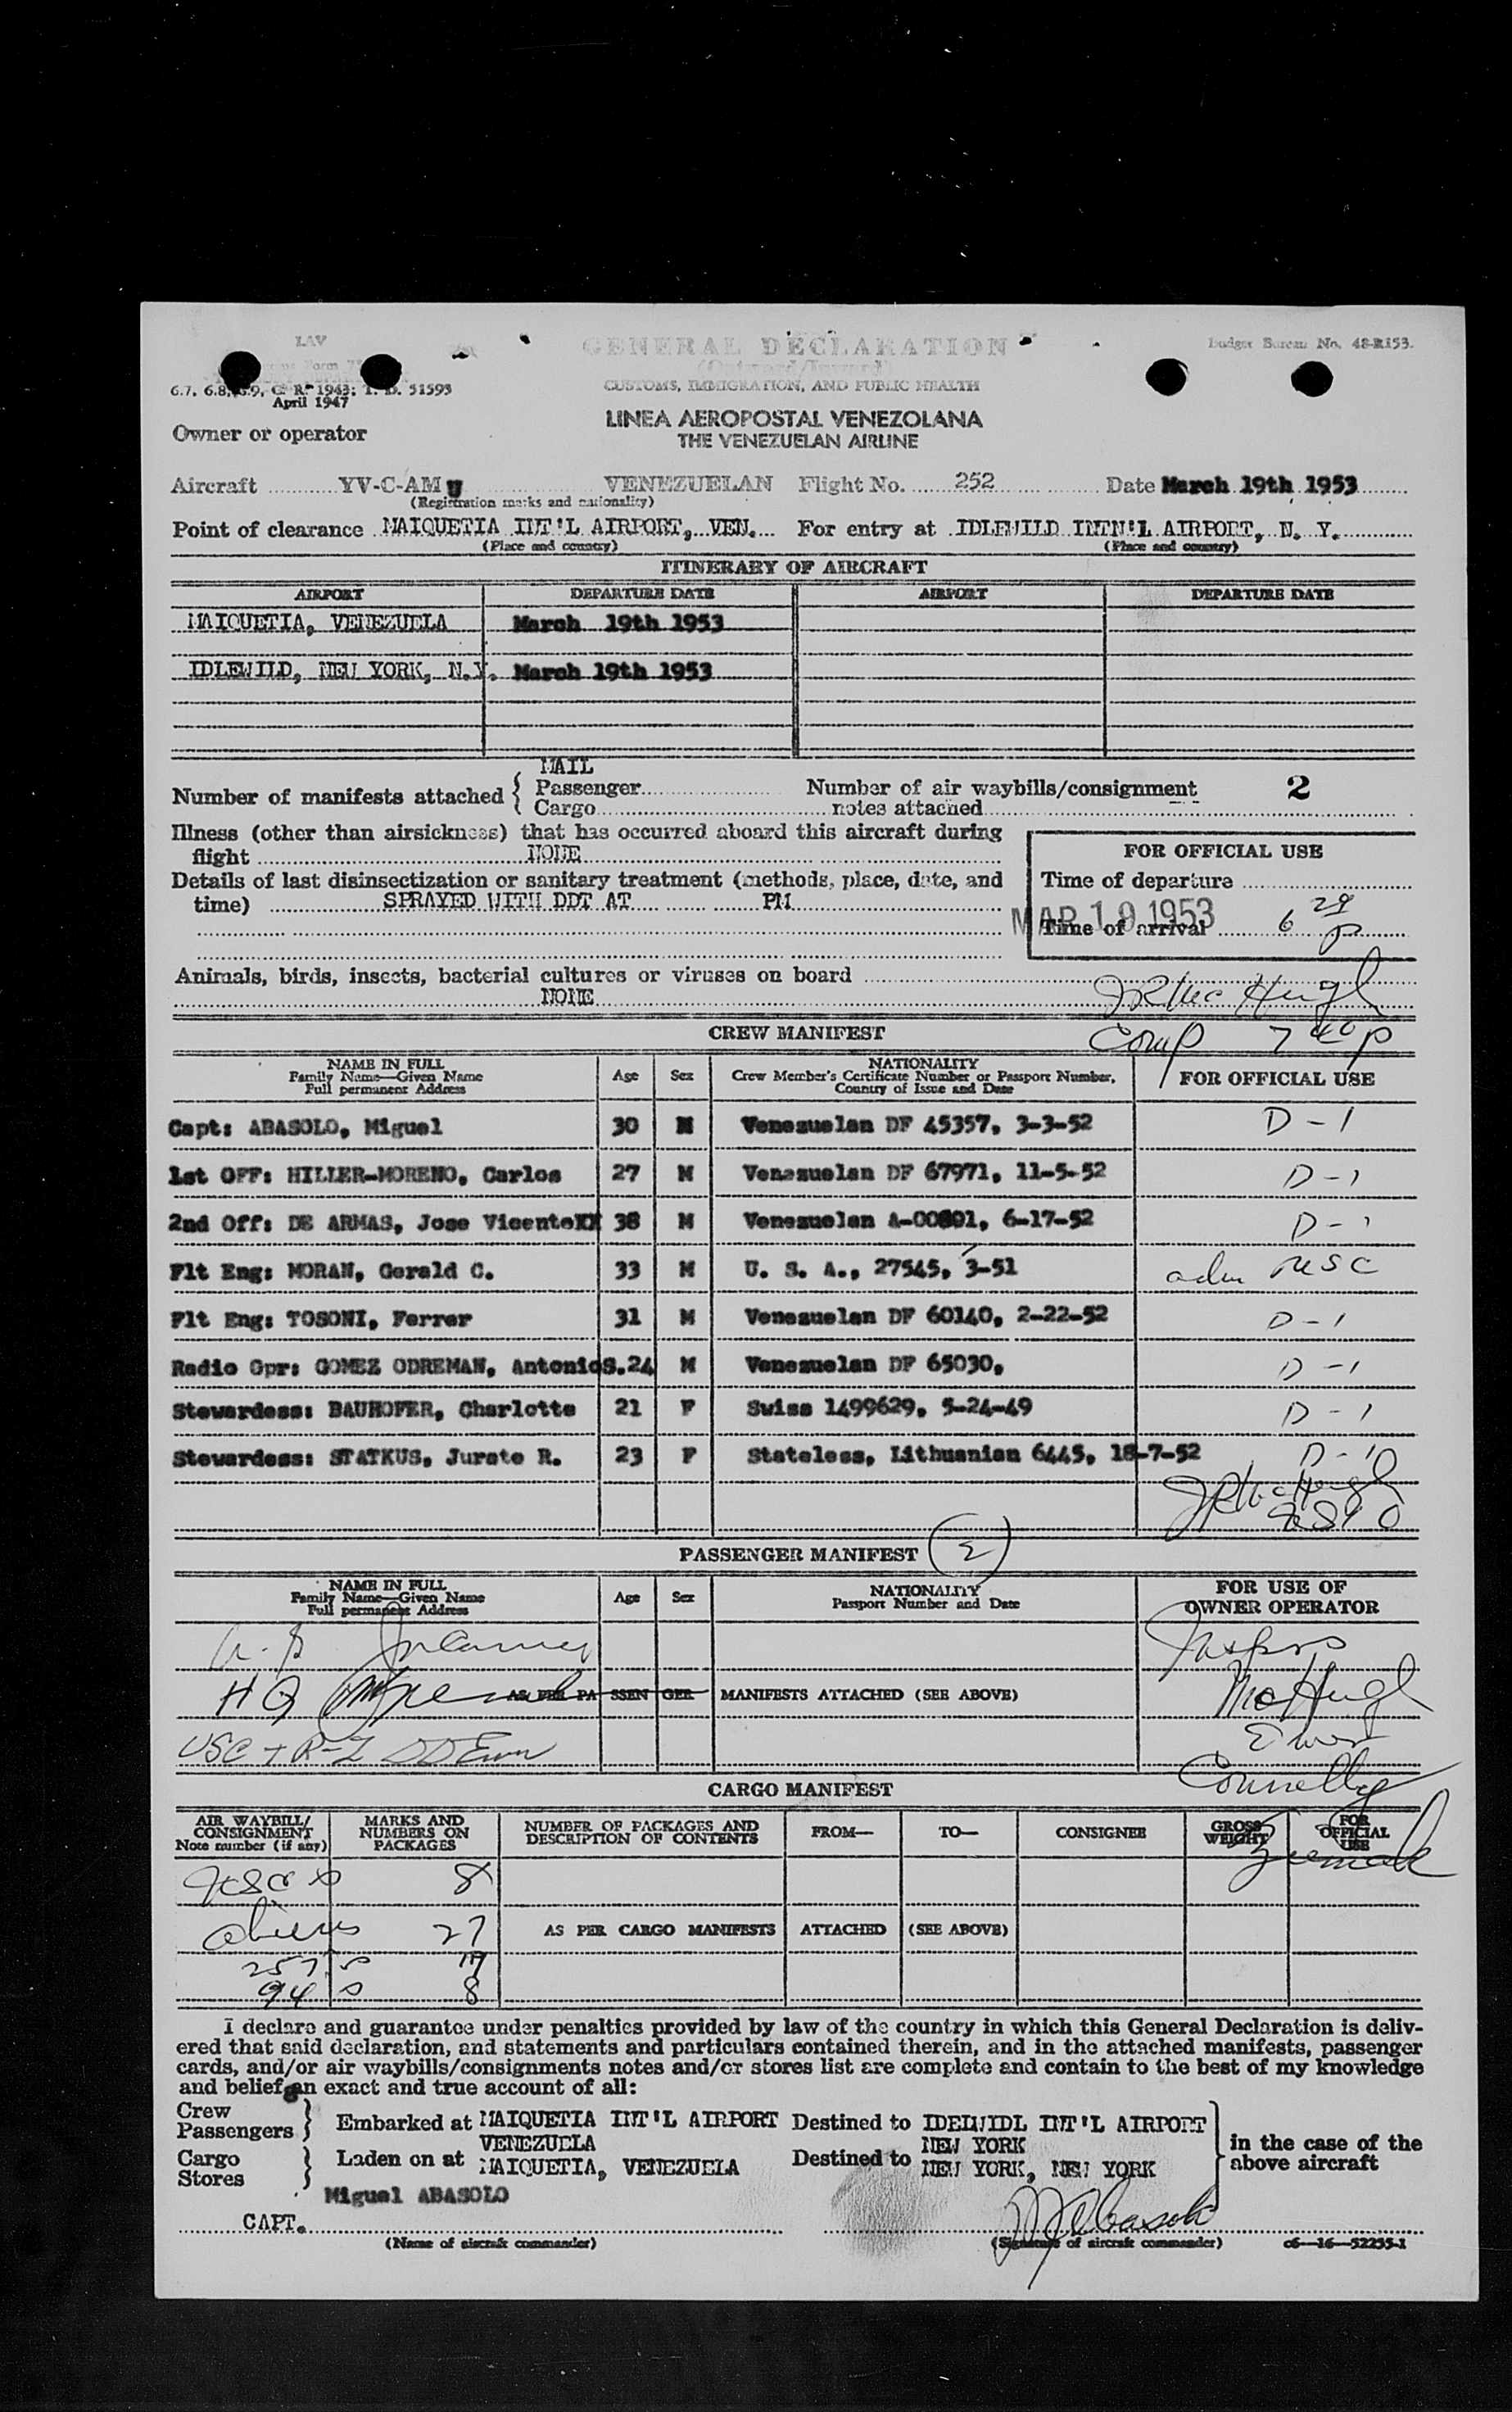 LAV
GENERAL DECLARATION
(Outward/Inward)
Budget Bureau No. 48-R153.
6.7, 6.8, 6.9, C. R. 1943; T. D. 51593
April 1947
CUSTOMS, IMMIGRATION, AND PUBLIC HEALTH
LINEA AEROPOSTAL VENEZOLANA
THE VENEZUELAN AIRLINE
Owner or operator
Aircraft YV-C-AMU VENEZUELAN Flight No. 252 Date March 19th 1953
(Registration marks and nationality)
Point of clearance MAIQUETIA INT'L AIRPORT, VEN. For entry at IDLEWILD INTN'L AIRPORT, N. Y.
(Place and country) (Place and country)
ITINERARY OF AIRCRAFT
AIRPORT DEPARTURE DATE AIRPORT DEPARTURE DATE
MAIQUETIA, VENEZUELA March 19th 1953
IDLEWILD, NEW YORK, N.Y. March 19th 1953
MAIL
Number of manifests attached { Passenger Number of air waybills/consignment 2
Cargo notes attached
Illness (other than airsickness) that has occurred aboard this aircraft during
flight NONE
FOR OFFICIAL USE
Details of last disinsectization or sanitary treatment (methods, place, date, and
time) SPRAYED WITH DDT AT PM
Time of departure
MAR 19 1953
Time of arrival 6 29 P
Animals, birds, insects, bacterial cultures or viruses on board
NONE
JR McHugh
Comp 7 40 P
CREW MANIFEST
NAME IN FULL Age Sex NATIONALITY FOR OFFICIAL USE
Family Name—Given Name Crew Member's Certificate Number or Passport Number,
Full permanent Address Country of Issue and Date
Capt: ABASOLO, Miguel 30 M Venezuelan DF 45357, 3-3-52 D-1
1st OFF: HILLER-MORENO, Carlos 27 M Venezuelan DF 67971, 11-5-52 D-1
2nd Off: DE ARMAS, Jose VicenteXX 38 M Venezuelan A-00801, 6-17-52 D-1
Flt Eng: MORAN, Gerald C. 33 M U. S. A., 27545, 3-51 adm USC
Flt Eng: TOSONI, Ferrer 31 M Venezuelan DF 60140, 2-22-52 D-1
Radio Opr: GOMEZ ODREMAN, AntonioS. 24 M Venezuelan DF 65030, D-1
Stewardess: BAUHOFER, Charlotte 21 F Swiss 1499629, 5-24-49 D-1
Stewardess: STATKUS, Jurate R. 23 F Stateless, Lithuanian 6445, 18-7-52 D-1
JR McHugh
PASSENGER MANIFEST
NAME IN FULL Age Sex NATIONALITY FOR USE OF
Family Name—Given Name Passport Number and Date OWNER OPERATOR
Full permanent Address
Insprs
HQ AS PER PASSENGER MANIFESTS ATTACHED (SEE ABOVE) McHugh
USC + R-I
Connelly
CARGO MANIFEST
AIR WAYBILL/ MARKS AND NUMBER OF PACKAGES AND FROM— TO— CONSIGNEE GROSS FOR
CONSIGNMENT NUMBERS ON DESCRIPTION OF CONTENTS WEIGHT OFFICIAL
Note number (if any) PACKAGES USE
8
aliens 27 AS PER CARGO MANIFESTS ATTACHED (SEE ABOVE)
257 17
94 8
I declare and guarantee under penalties provided by law of the country in which this General Declaration is deliv-
ered that said declaration, and statements and particulars contained therein, and in the attached manifests, passenger
cards, and/or air waybills/consignments notes and/or stores list are complete and contain to the best of my knowledge
and belief an exact and true account of all:
Crew
Passengers } Embarked at MAIQUETIA INT'L AIRPORT Destined to IDEWIDL INT'L AIRPORT
VENEZUELA NEW YORK in the case of the
Cargo } Laden on at MAIQUETIA, VENEZUELA Destined to NEW YORK, NEW YORK above aircraft
Stores
Miguel ABASOLO
CAPT. MAbasolo
(Name of aircraft commander) (Signature of aircraft commander) c6—16—52235-1